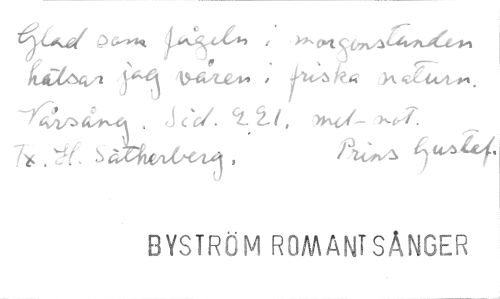 Glad som fågeln i morgonstunden
hälsar jag våren i friska naturn.
Vårsång. Sid. 221. mel-not.
Tx. H. Sätherberg. Prins Gustef.
BYSTRÖM ROMANT SÅNGER